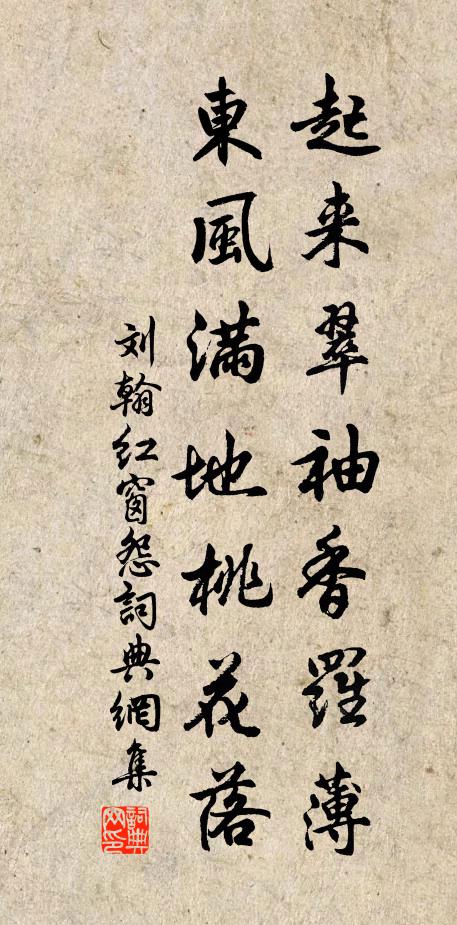 起来翠袖香羅薄
東風滿地桃花落
刘翰红窗怨詞典網集
詞典网印